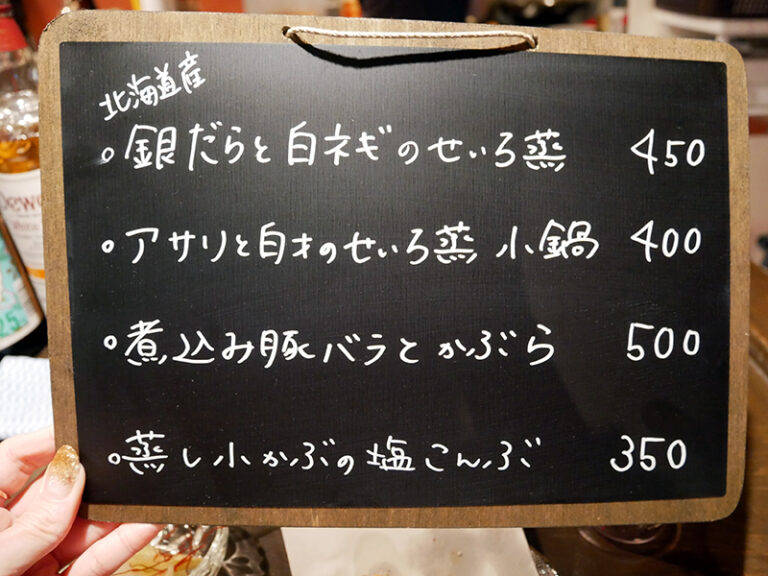 北海道産
○銀だらと白ネギのせいろ蒸 450
○アサリと白才のせいろ蒸 小鍋 400
○煮込み豚バラとかぶら 500
○蒸し小かぶの塩こんぶ 350